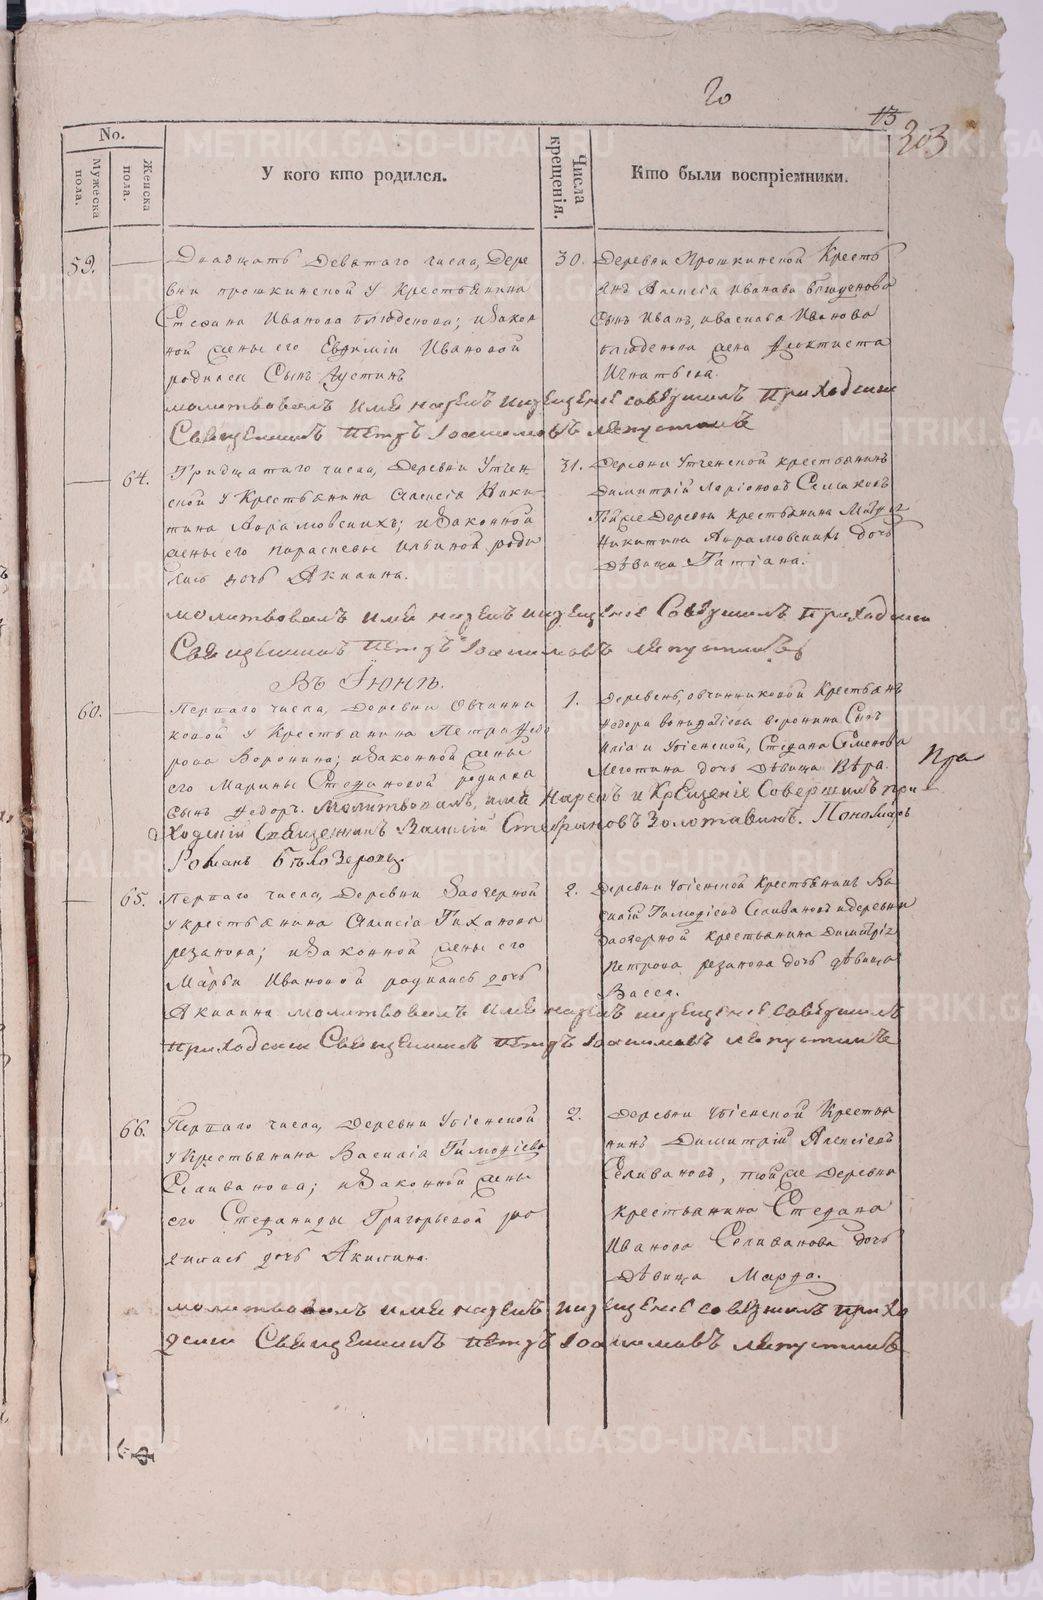 20
13
203
No.
Мужеска пола.
Женска пола.
У кого кто родился.
Числа крещенія.
Кто были воспріемники.
59.
Двадцать Девятаго числа, Дере
вни прошкинской у Крестьянина
Стефана Иванова Блюденова; и Закон
ной жены его Евфиміи Ивановой
родился Сынъ Іустинъ
30.
Деревни Прошкинской Кресть
янъ Алексѣя Иванова Блюденова
Сынъ Иванъ, и Василья Иванова
Блюденова жена Феоктиста
Игнатьева.
молитвовалъ имя нарекъ и крещеніе совершилъ Приходскій
Священникъ Петръ Іоакимовъ Ляпустинъ
64.
Тридцатаго числа, Деревни Утчен
ской у Крестьянина Алексѣя Ники
тина Аврамовскихъ; и Законной
жены его Параскевы Ильиной роди
лась дочь Акилина.
31.
Деревни Утченской крестьянинъ
Димитрій Ларіоновъ Семаковъ
Той же Деревни Крестьянина
Никитина Аврамовскихъ дочь
Дѣвица Татіана.
молитвовалъ имя нарекъ и крещеніе Совершилъ Приходскій
Священникъ Петръ Іоакимовъ Ляпустинъ
Въ Іюнѣ.
60.
Перваго числа, Деревни Овчинни
ковой у Крестьянина Петра Федо
рова Воронина; и Законной жены
его Марины Стефановой родился
сынъ Федоръ. Молитвовалъ, имя Нарекъ и Крещеніе Совершилъ При
ходскій Священникъ Василій Стефановъ Золотавинъ. Пономарь
Романъ Бѣлозеровъ.
1.
Деревень, овчинниковой Крестьян
Федора Воронина Сынъ
Илія и Убіенской, Стефана Семенова
Леготина дочь Дѣвица Вѣра.
Пра
65.
Перваго числа, Деревни Заозерной
у крестьянина Алексія Тиханова
резанова; и Законной жены его
Марьи Ивановой родилась дочь
Акилина молитвовалъ имя нарекъ и крещеніе совершилъ
Приходскій Священникъ Петръ Іоакимовъ Ляпустинъ
2.
Деревни Убіенской Крестьянинъ Ва
силій Тимофіевъ Селивановъ и деревни
Заозерной крестьянина Димитрія
Петрова резанова дочь дѣвица
Васса.
66.
Перваго числа, Деревни Убіенской
у Крестьянина Василія Тимофіева
Селиванова; и Законной жены
его Стефаниды Григорьевой ро
дилась дочь Акилина.
2.
Деревни Убіенской Кресть
янинъ Димитрій Алексіевъ
Селивановъ, той же Деревни
крестьянина Стефана
Иванова Селиванова дочь
Дѣвица Марфа.
молитвовалъ имя нарекъ и крещеніе совершилъ Прихо
дскій Священникъ Петръ Іоакимовъ Ляпустинъ
METRIKI.GASO-URAL.RU